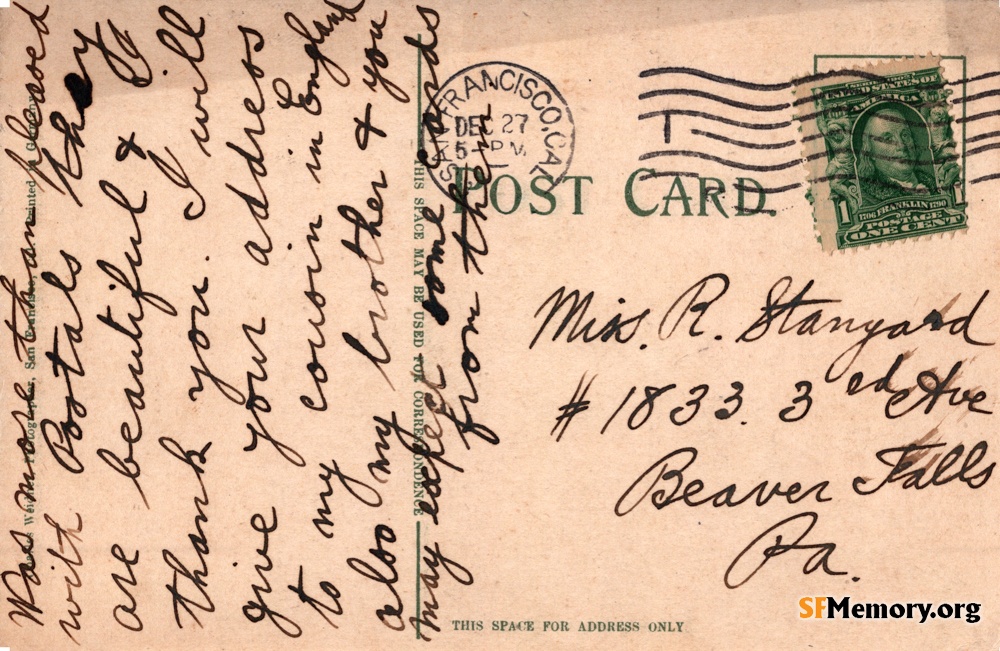 Was more than pleased
with Postals they
are beautiful & I
thank you. I will
give your address
to my cousin in England
also my brother & you
may expect some cards
from them
THIS SPACE MAY BE USED FOR CORRESPONDENCE
SAN FRANCISCO, CAL.
DEC 27
5 - PM
POST CARD.
UNITED STATES OF
AMERICA
1
1706 FRANKLIN 1790
POSTAGE
ONE CENT
Miss. R. Stanyard
# 1833. 3rd Ave
Beaver Falls
Pa.
THIS SPACE FOR ADDRESS ONLY
SFMemory.org